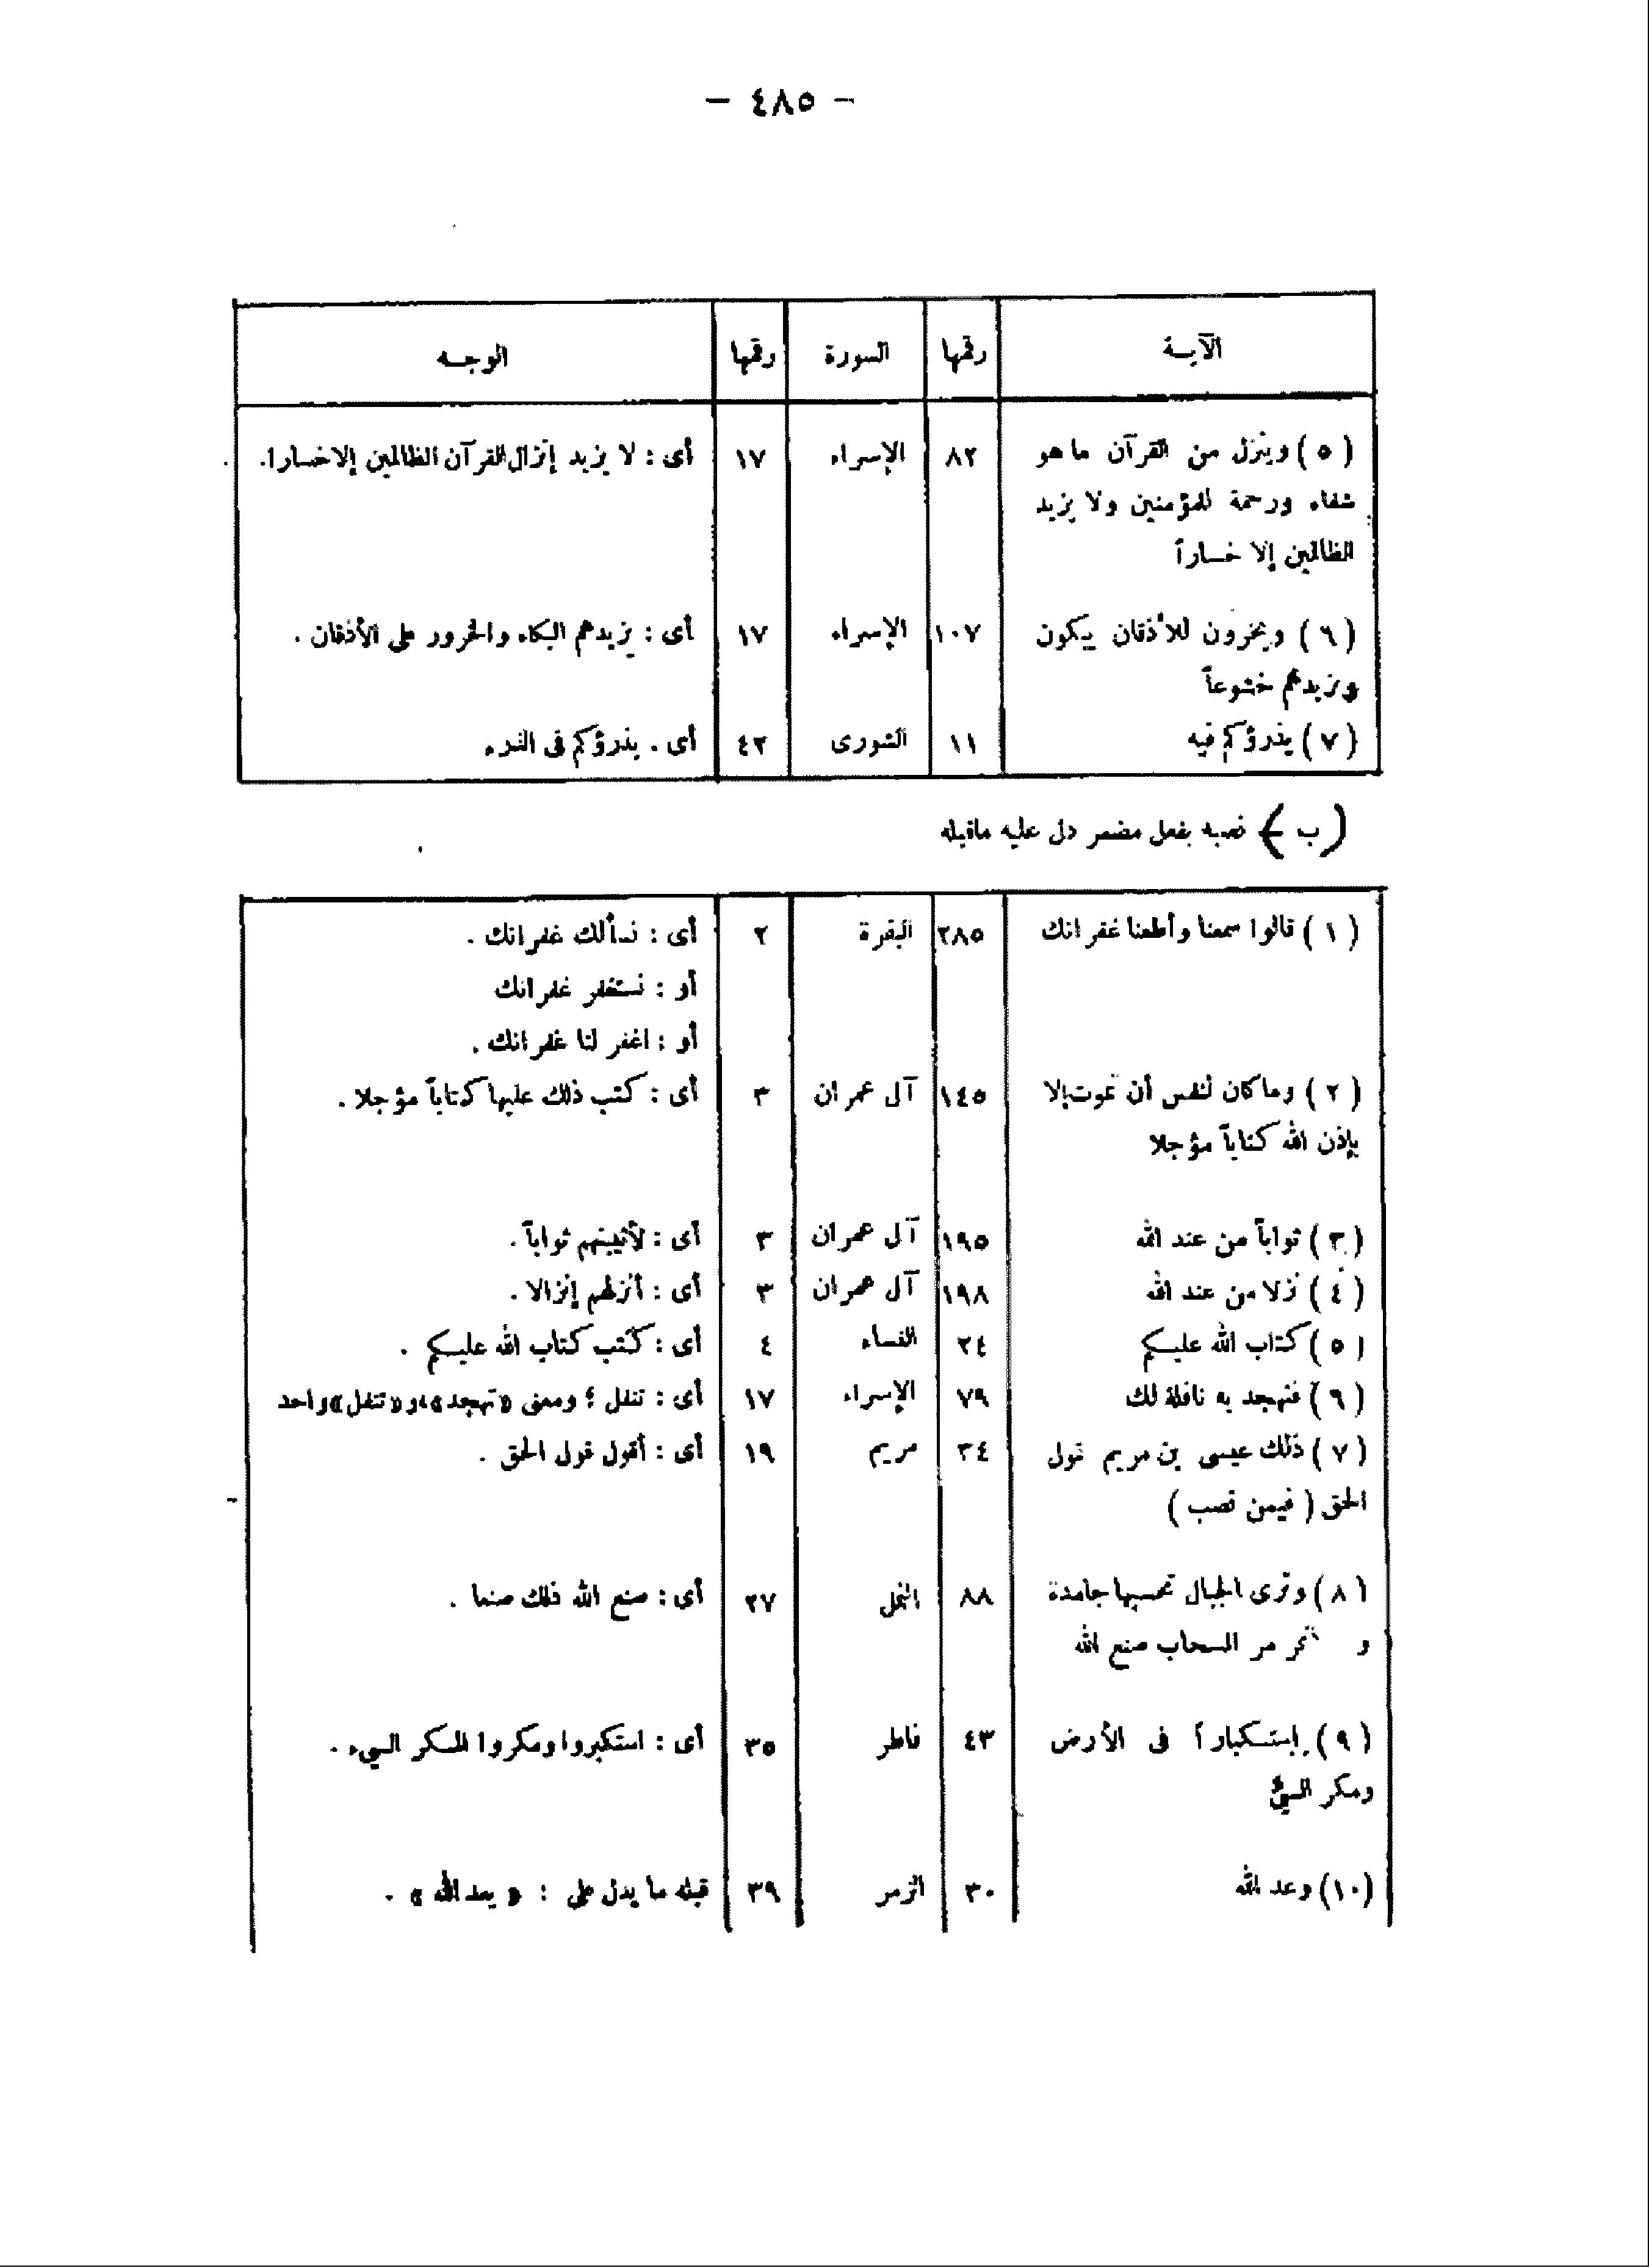 - ٤٨٥ -
الآيـة رقمها السورة رقمها الوجـه
(٥) وينزل من القرآن ما هو ٨٢ الإسراء ١٧ أى : لا يزيد إنزال القرآن الظالمين إلا خسارا.
شفاء ورحمة للمؤمنين ولا يزيد
الظالمين إلا خساراً
(٦) ويخرون للأذقان يبكون ١٠٧ الإسراء ١٧ أى : يزيدهم البكاء والخرور على الأذقان .
ويزيدهم خشوعاً
(٧) يذرؤكم فيه ١١ الشورى ٤٢ أى . يذرؤكم فى الذرء
(ب) نصبه بفعل مضمر دل عليه ماقبله
(١) قالوا سمعنا وأطعنا غفرانك ٢٨٥ البقرة ٢ أى : نسألك غفرانك .
أو : نستغفر غفرانك
أو : اغفر لنا غفرانك .
(٢) وما كان لنفس أن تموت إلا ١٤٥ آل عمران ٣ أى : كتب ذلك عليها كتاباً مؤجلا .
بإذن الله كتاباً مؤجلا
(٣) ثواباً من عند الله ١٩٥ آل عمران ٣ أى : لأثيبنهم ثواباً .
(٤) نزلا من عند الله ١٩٨ آل عمران ٣ أى : أنزلهم إنزالا .
(٥) كتاب الله عليـكم ٢٤ النساء ٤ أى : كتب كتاب الله عليـكم .
(٦) فتهجد به نافلة لك ٧٩ الإسراء ١٧ أى : تنفل ؛ ومعنى «تهجد»،و«تنفل»واحد
(٧) ذلك عيسى بن مريم قول ٣٤ مريم ١٩ أى : أقول قول الحق .
الحق ( فيمن نصب )
(٨) وترى الجبال تحسبها جامدة ٨٨ النمل ٢٧ أى : صنع الله ذلك صنعا .
و تمر مر السحاب صنع الله
(٩) إستـكباراً فى الأرض ٤٣ فاطر ٣٥ أى : استكبروا ومكروا المـكر السيء .
ومكر السيّئ
(١٠) وعد الله ٣٠ الزمر ٣٩ قبله ما يدل على : « يعد الله » .